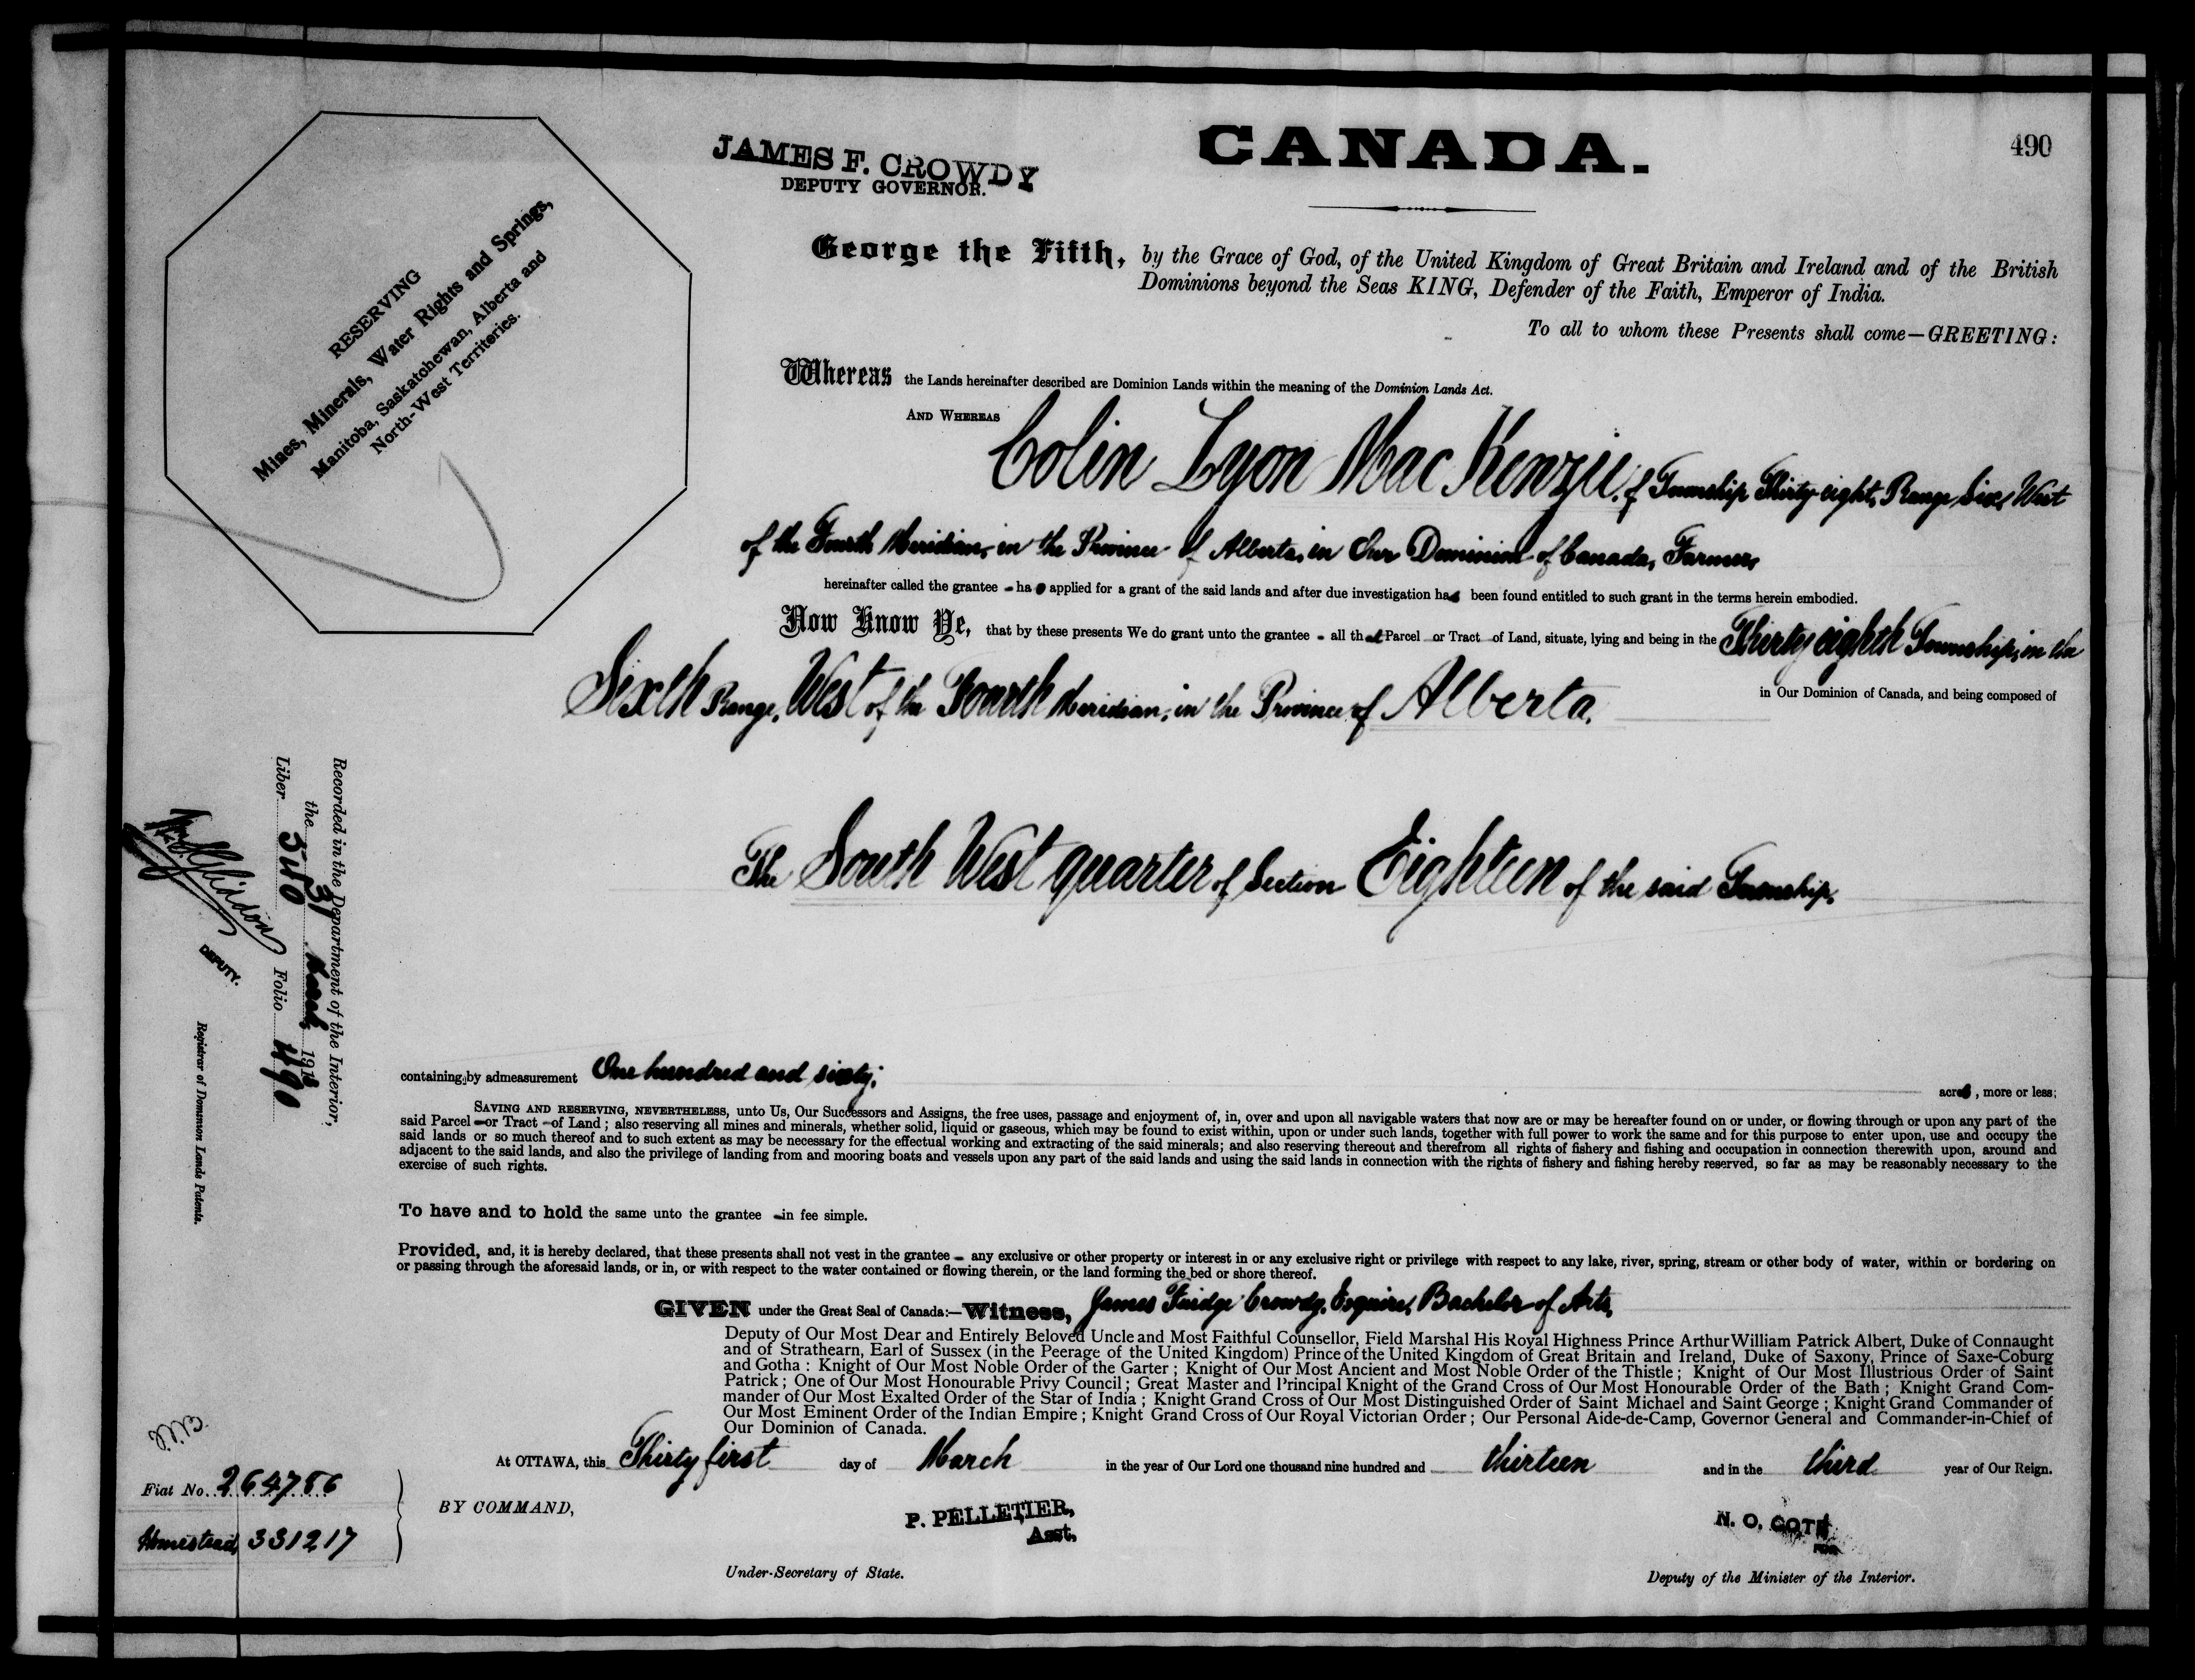 490
CANADA.
JAMES F. CROWDY
DEPUTY GOVERNOR.
RESERVING
Mines, Minerals, Water Rights and Springs,
Manitoba, Saskatchewan, Alberta and
North-West Territories.
George the Fifth, by the Grace of God, of the United Kingdom of Great Britain and Ireland and of the British
Dominions beyond the Seas KING, Defender of the Faith, Emperor of India.
To all to whom these Presents shall come—GREETING:
Whereas the Lands hereinafter described are Dominion Lands within the meaning of the Dominion Lands Act.
AND WHEREAS
Colin Lyon Mac Kenzie, of Township Thirty-eight, Range Six, West
of the Fourth Meridian, in the Province of Alberta, in Our Dominion of Canada, Farmer,
hereinafter called the grantee - ha applied for a grant of the said lands and after due investigation has been found entitled to such grant in the terms herein embodied.
Now Know Ye, that by these presents We do grant unto the grantee - all that Parcel or Tract of Land, situate, lying and being in the Thirty eighth Township, in the
Sixth Range, West of the Fourth Meridian, in the Province of Alberta. in Our Dominion of Canada, and being composed of
The South West quarter of Section Eighteen of the said Township,
containing by admeasurement One hundred and sixty; acres, more or less;
SAVING AND RESERVING, NEVERTHELESS, unto Us, Our Successors and Assigns, the free uses, passage and enjoyment of, in, over and upon all navigable waters that now are or may be hereafter found on or under, or flowing through or upon any part of the
said Parcel -or Tract -of Land; also reserving all mines and minerals, whether solid, liquid or gaseous, which may be found to exist within, upon or under such lands, together with full power to work the same and for this purpose to enter upon, use and occupy the
said lands or so much thereof and to such extent as may be necessary for the effectual working and extracting of the said minerals; and also reserving thereout and therefrom all rights of fishery and fishing and occupation in connection therewith upon, around and
adjacent to the said lands, and also the privilege of landing from and mooring boats and vessels upon any part of the said lands and using the said lands in connection with the rights of fishery and fishing hereby reserved, so far as may be reasonably necessary to the
exercise of such rights.
To have and to hold the same unto the grantee -in fee simple.
Provided, and, it is hereby declared, that these presents shall not vest in the grantee - any exclusive or other property or interest in or any exclusive right or privilege with respect to any lake, river, spring, stream or other body of water, within or bordering on
or passing through the aforesaid lands, or in, or with respect to the water contained or flowing therein, or the land forming the bed or shore thereof.
GIVEN under the Great Seal of Canada:—Witness, James Fuidge Crowdy, Esquire, Bachelor of Arts,
Deputy of Our Most Dear and Entirely Beloved Uncle and Most Faithful Counsellor, Field Marshal His Royal Highness Prince Arthur William Patrick Albert, Duke of Connaught
and of Strathearn, Earl of Sussex (in the Peerage of the United Kingdom) Prince of the United Kingdom of Great Britain and Ireland, Duke of Saxony, Prince of Saxe-Coburg
and Gotha: Knight of Our Most Noble Order of the Garter; Knight of Our Most Ancient and Most Noble Order of the Thistle; Knight of Our Most Illustrious Order of Saint
Patrick; One of Our Most Honourable Privy Council; Great Master and Principal Knight of the Grand Cross of Our Most Honourable Order of the Bath; Knight Grand Com-
mander of Our Most Exalted Order of the Star of India; Knight Grand Cross of Our Most Distinguished Order of Saint Michael and Saint George; Knight Grand Commander of
Our Most Eminent Order of the Indian Empire; Knight Grand Cross of Our Royal Victorian Order; Our Personal Aide-de-Camp, Governor General and Commander-in-Chief of
Our Dominion of Canada.
At OTTAWA, this Thirty first day of March in the year of Our Lord one thousand nine hundred and thirteen and in the third year of Our Reign.
BY COMMAND,
P. PELLETIER,
Asst.
Under-Secretary of State.
N. O. COTE
FOR
Deputy of the Minister of the Interior.
Recorded in the Department of the Interior,
the 31 March 1913
Liber 340 Folio 490
DEPUTY.
Registrar of Dominion Lands Patents.
Fiat No. 264786
Homestead, 331217